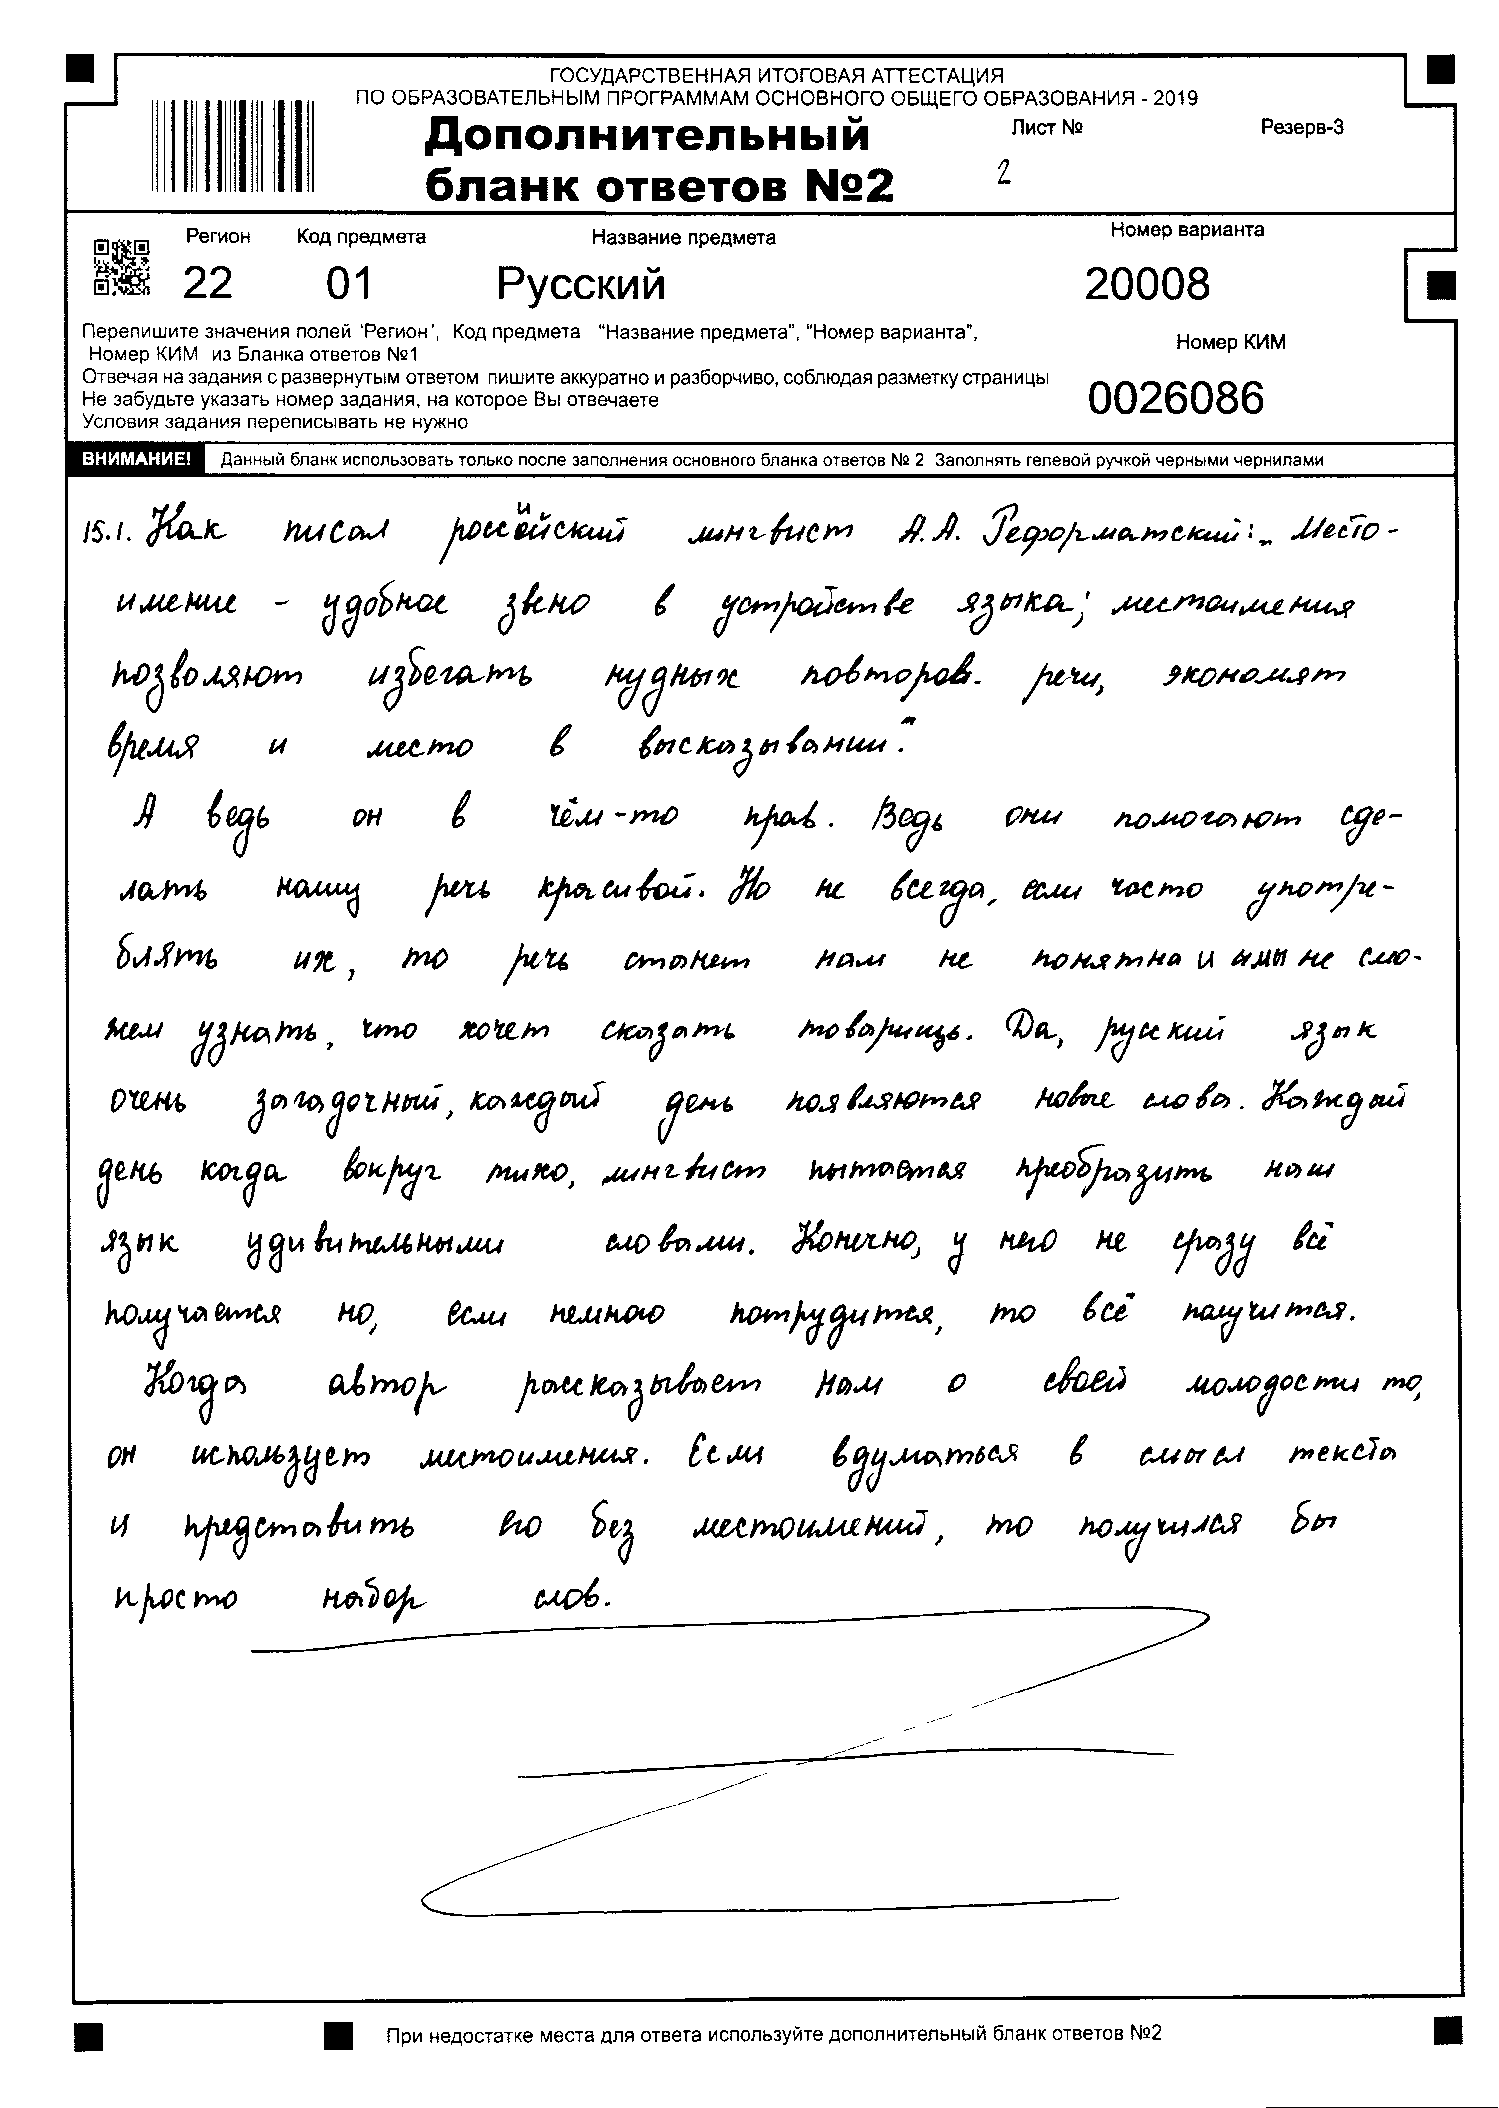 ГОСУДАРСТВЕННАЯ ИТОГОВАЯ АТТЕСТАЦИЯ
ПО ОБРАЗОВАТЕЛЬНЫМ ПРОГРАММАМ ОСНОВНОГО ОБЩЕГО ОБРАЗОВАНИЯ - 2019
Дополнительный
бланк ответов №2
Лист №
2
Резерв-3
Регион
22
Код предмета
01
Название предмета
Русский
Номер варианта
20008
Перепишите значения полей 'Регион', Код предмета "Название предмета", "Номер варианта",
Номер КИМ из Бланка ответов №1
Отвечая на задания с развернутым ответом пишите аккуратно и разборчиво, соблюдая разметку страницы
Не забудьте указать номер задания, на которое Вы отвечаете
Условия задания переписывать не нужно
Номер КИМ
0026086
ВНИМАНИЕ! Данный бланк использовать только после заполнения основного бланка ответов № 2 Заполнять гелевой ручкой черными чернилами
15.1. Как писал российский лингвист А.А. Реформатский: „Место-
имение - удобное звено в устройстве языка; местоимения
позволяют избегать нудных повторов. речи, экономят
время и место в высказывании."
А ведь он в чём-то прав. Ведь они помогают сде-
лать нашу речь красивой. Но не всегда, если часто употре-
блять их, то речь станет нам не понятна и мы не смо-
жем узнать, что хочет сказать товарищь. Да, русский язык
очень загадочный, каждый день появляются новые слова. Каждый
день когда вокруг тихо, лингвист пытается преобразить наш
язык удивительными словами. Конечно, у него не сразу всё
получается но, если немного потрудится, то всё получится.
Когда автор рассказывает нам о своей молодости то,
он использует местоимения. Если вдуматься в смысл текста
и представить его без местоимений, то получился бы
просто набор слов.
При недостатке места для ответа используйте дополнительный бланк ответов №2